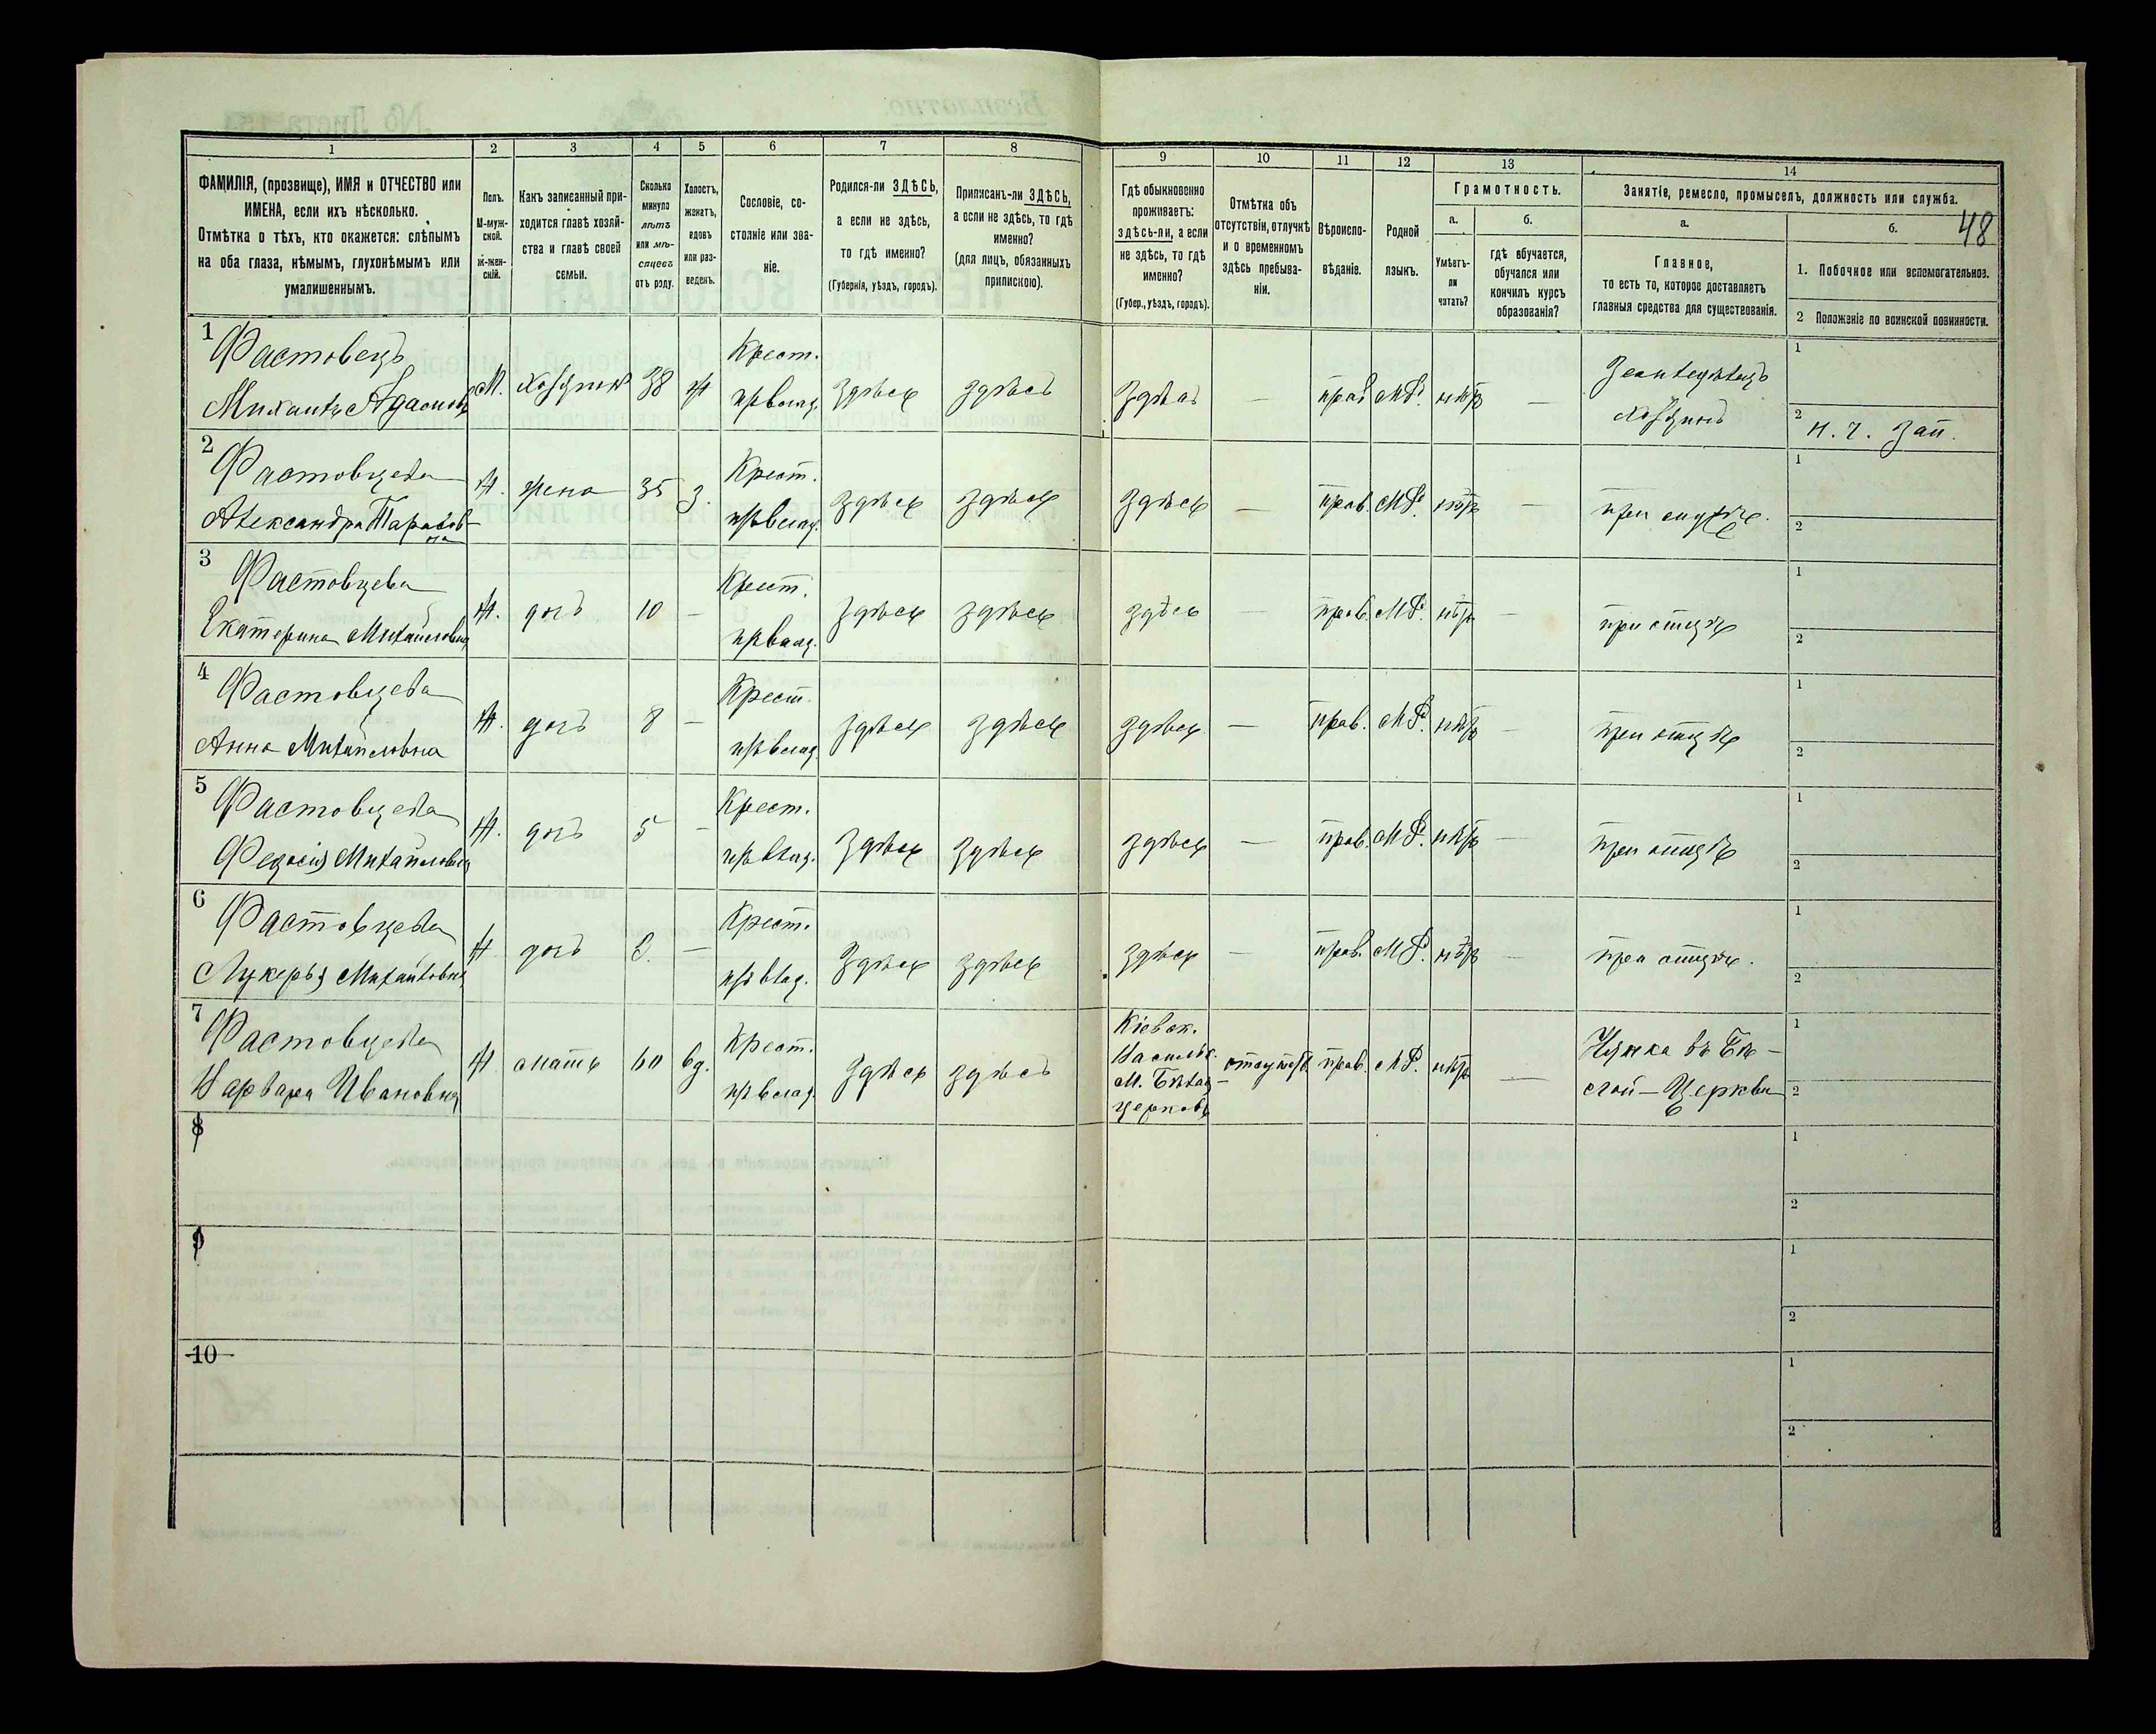 48
1 2 3 4 5 6 7 8 9 10 11 12 13 14
ФАМИЛІЯ, (прозвище), ИМЯ и ОТЧЕСТВО или
ИМЕНА, если ихъ нѣсколько.
Отмѣтка о тѣхъ, кто окажется: слѣпымъ
на оба глаза, нѣмымъ, глухонѣмымъ или
умалишеннымъ.
Полъ.
М-муж-
ской.
Ж-жен-
скій.
Какъ записанный при-
ходится главѣ хозяй-
ства и главѣ своей
семьи.
Сколько
минуло
лѣтъ
или мѣ-
сяцевъ
отъ роду.
Холостъ,
женатъ,
вдовъ
или раз-
веденъ.
Сословіе, со-
стояніе или зва-
ніе.
Родился-ли ЗДѢСЬ,
а если не здѣсь,
то гдѣ именно?
(Губернія, уѣздъ, городъ).
Приписанъ-ли ЗДѢСЬ,
а если не здѣсь, то гдѣ
именно?
(для лицъ, обязанныхъ
припискою).
Гдѣ обыкновенно
проживаетъ:
здѣсь-ли, а если
не здѣсь, то гдѣ
именно?
(Губер., уѣздъ, городъ).
Отмѣтка объ
отсутствіи, отлучкѣ
и о временномъ
здѣсь пребыва-
ніи.
Вѣроиспо-
вѣданіе.
Родной
языкъ.
Грамотность.
а.
Умѣетъ-
ли
читать?
б.
гдѣ обучается,
обучался или
кончилъ курсъ
образованія?
Занятіе, ремесло, промыселъ, должность или служба.
а.
Главное,
то есть то, которое доставляетъ
главныя средства для существованія.
б.
1. Побочное или вспомогательное.
2 Положеніе по воинской повинности.
1 Фастовецъ Крест. Земледѣлецъ 1
Михаилъ М. хозяинъ 38 ж здѣсь здѣсь здѣсь — прав МР. нѣтъ — хозяинъ 2 н. ч. зап.
2 Фастовцева Крест. 1
Александра Тарасов- Ж. жена 35 З. здѣсь здѣсь здѣсь — прав. МР. нѣтъ — при мужѣ. 2
на
3 Фастовцева Крест. 1
Екатерина Михайловна Ж. дочь 10 — здѣсь здѣсь здѣсь — прав. МР. нѣтъ — при отцѣ 2
4 Фастовцева Крест. 1
Анна Михайловна Ж. дочь 8 — здѣсь здѣсь здѣсь — прав. МР. нѣтъ — при отцѣ 2
5 Фастовцева Крест. 1
Федосія Михайловна Ж. дочь 5 — здѣсь здѣсь здѣсь — прав. МР. нѣтъ — при отцѣ 2
6 Фастовцева Крест. 1
Лукерья Михайловна Ж дочь — здѣсь здѣсь здѣсь — прав. МР. нѣтъ — при отцѣ. 2
7 Фастовцева Крест. Кіевск. 1
Варвара Ивановна Ж мать 60 вд. здѣсь здѣсь Васильк. прав. МР. нѣтъ — въ Бѣ-
М. Бѣлая- лой-Церкви 2
церковь
8 1
2
9 1
2
10 1
2